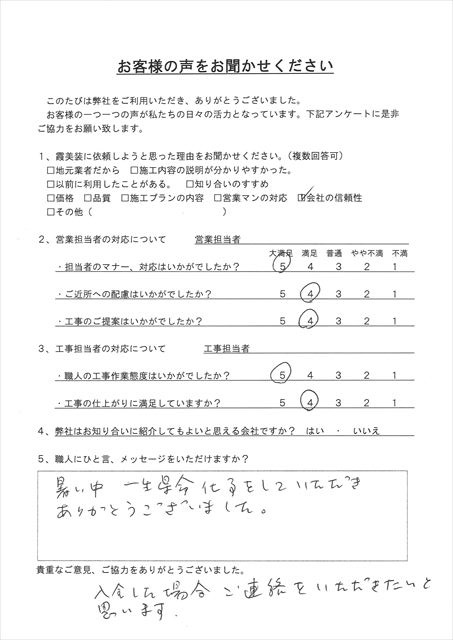 お客様の声をお聞かせください
このたびは弊社をご利用いただき、ありがとうございました。
お客様の一つ一つの声が私たちの日々の活力となっています。下記アンケートに是非
ご協力をお願い致します。
1、霞美装に依頼しようと思った理由をお聞かせください。（複数回答可）
□地元業者だから □施工内容の説明が分かりやすかった。
□以前に利用したことがある。 □知り合いのすすめ
□価格 □品質 □施工プランの内容 □営業マンの対応 ☑会社の信頼性
□その他（ ）
2、営業担当者の対応について 営業担当者
大満足 満足 普通 やや不満 不満
・担当者のマナー、対応はいかがでしたか？ 5 4 3 2 1
・ご近所への配慮はいかがでしたか？ 5 4 3 2 1
・工事のご提案はいかがでしたか？ 5 4 3 2 1
3、工事担当者の対応について 工事担当者
・職人の工事作業態度はいかがでしたか？ 5 4 3 2 1
・工事の仕上がりに満足していますか？ 5 4 3 2 1
4、弊社はお知り合いに紹介してもよいと思える会社ですか？ はい ・ いいえ
5、職人にひと言、メッセージをいただけますか？
暑い中 一生県命 仕事をしていただき
ありがとうございました。
貴重なご意見、ご協力をありがとうございました。
入金した場合 ご連絡をいただきたいと
思います.